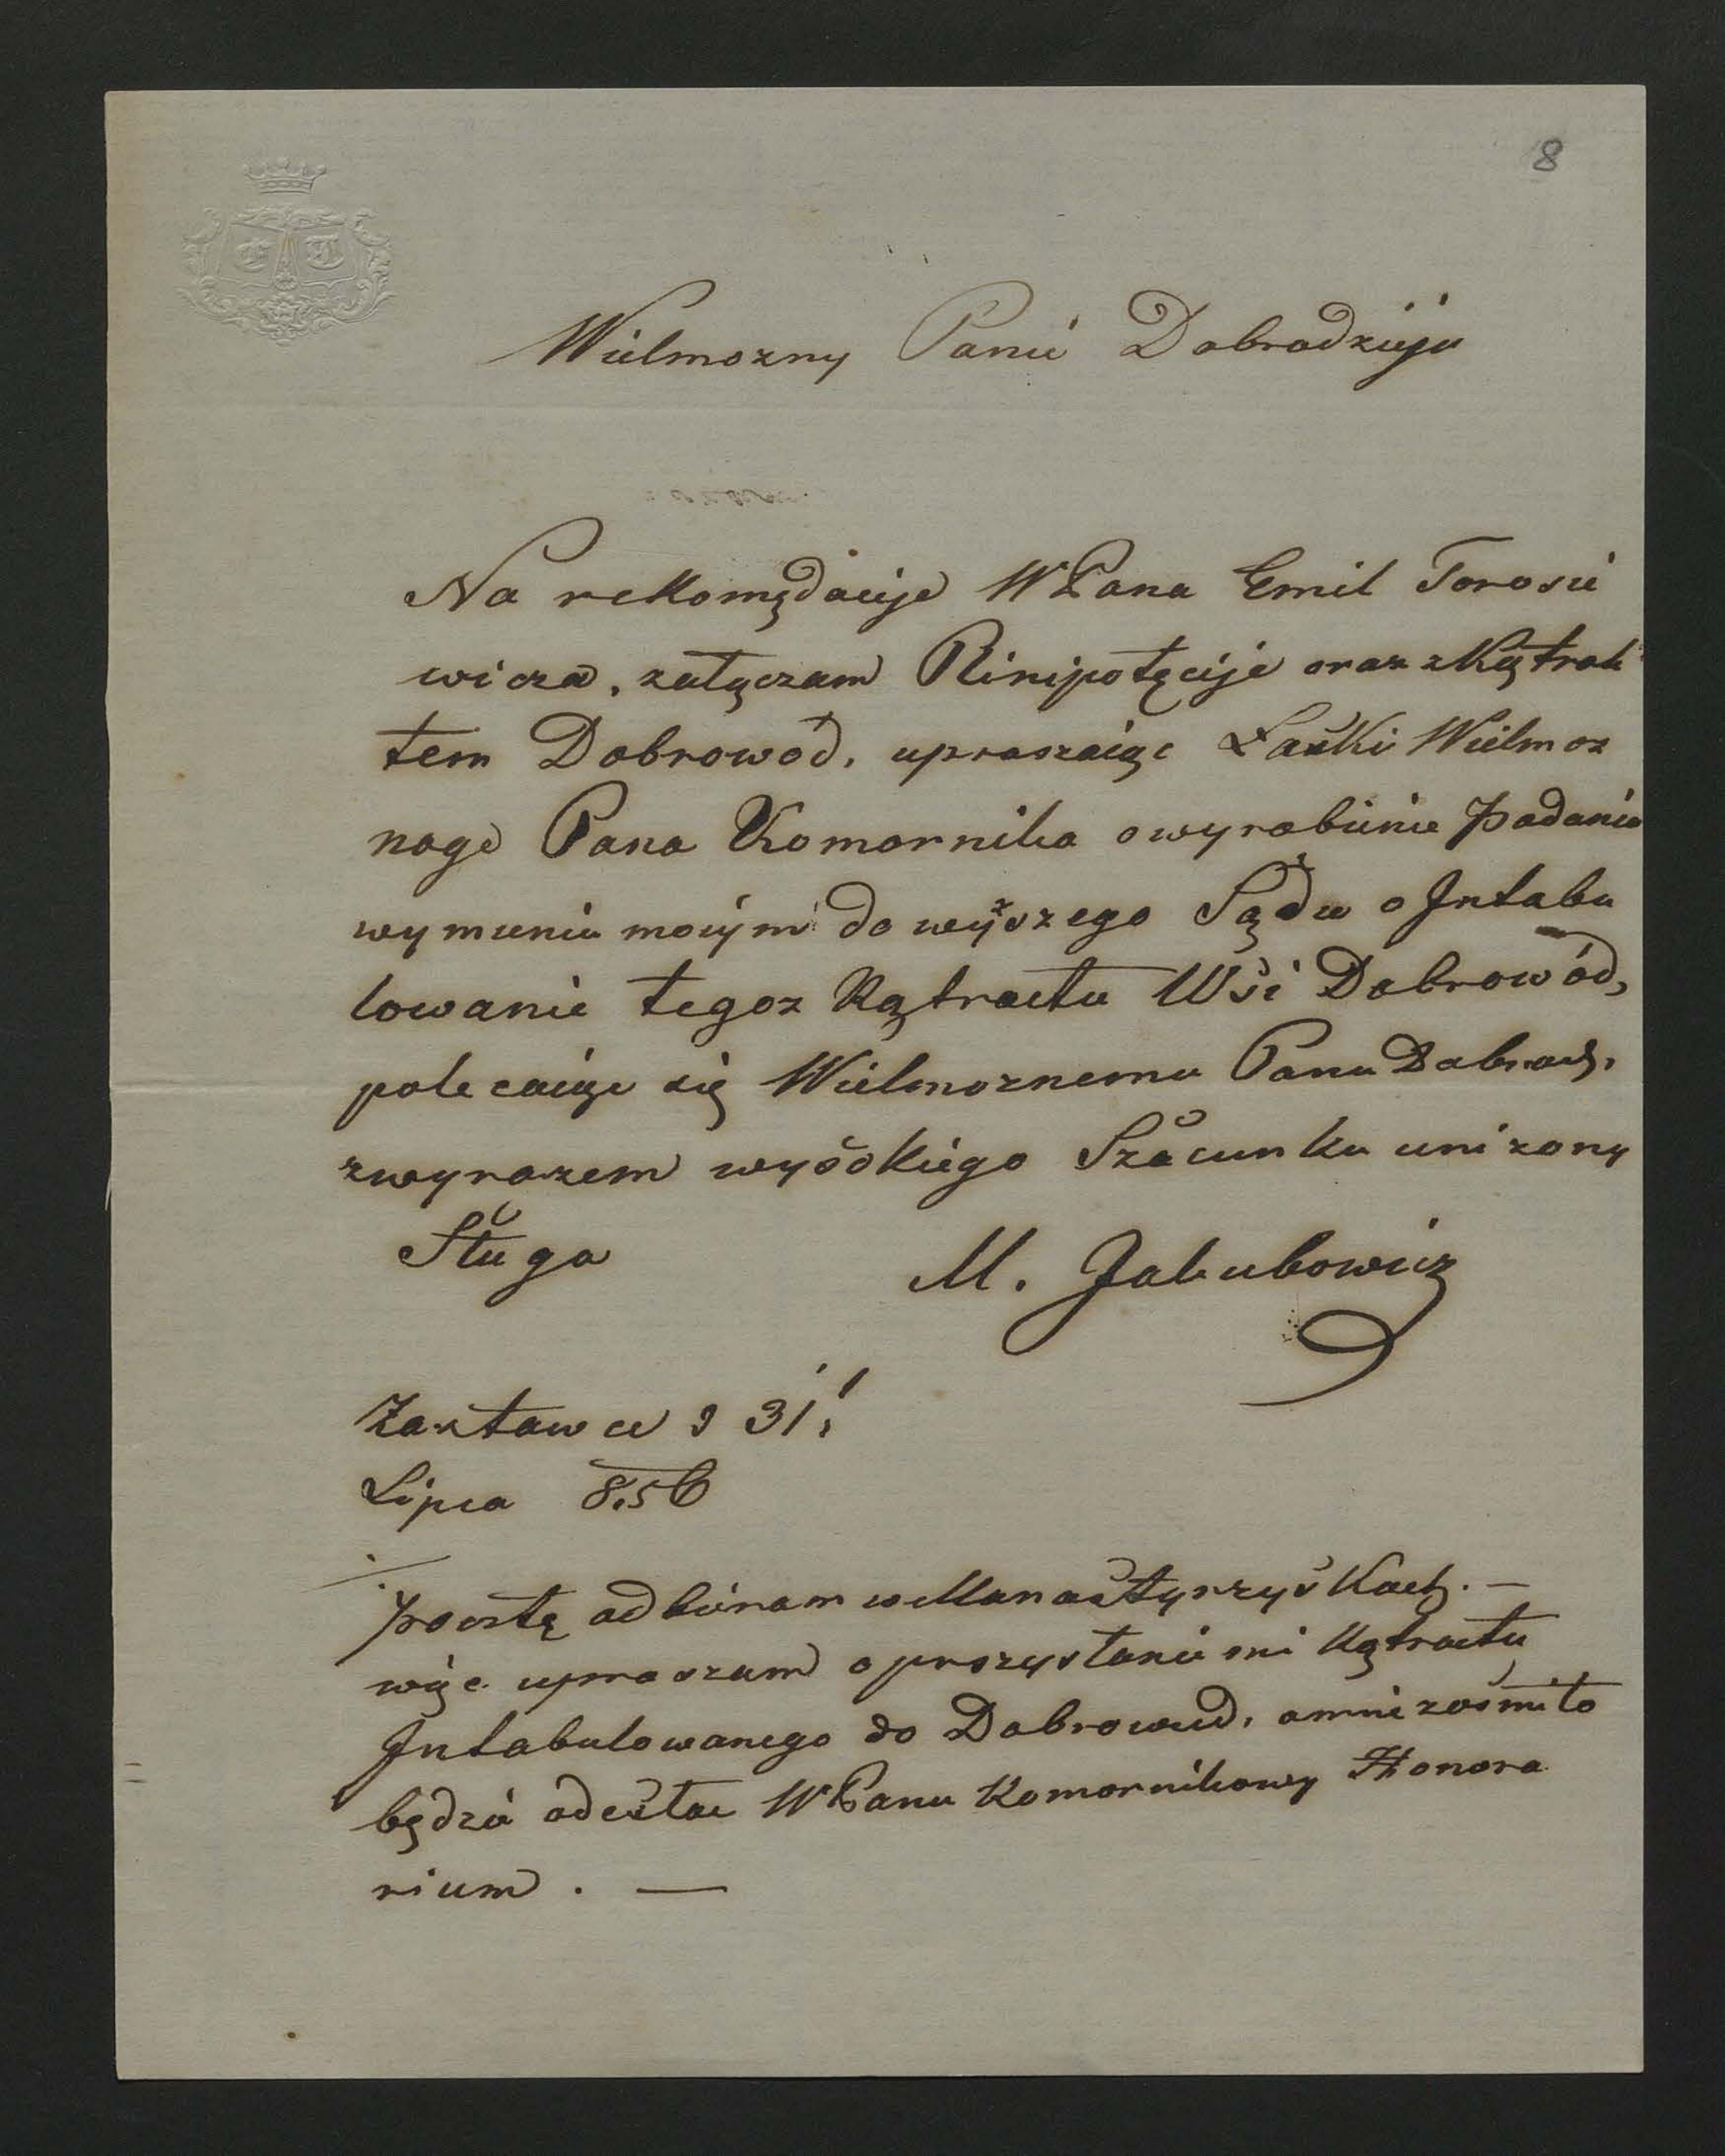 8
E T
Wielmozny Panie Dobrodzieju
Na rekomędacije WPana Emil Torosie
wicza, załączam Plinipotęcije oraz zkątrak
tem Dobrowód, upraszaiąc Łaski Wielmoz
nego Pana Komornika o wyrobienie Podania
wymieniu moiym do wyższego Sądu o Intabu
lowanie tegoz Kątractu Wśi Dobrowód,
polecaiąc się Wielmoznemu Panu Dobrodz.
zwyrazem wysokiego Szacunku unizony
Sługa M. Jakubowicz
Zastawce d 31
Lipca 856
Pocztę odbieram w Manastyrzyskach. —
więc upraszam o przysłanie mi Kątractu
Intabulowanego do Dobrowud, a mnie zaś miło
będzie odesłac WPanu Komornikowy Honora
rium . —